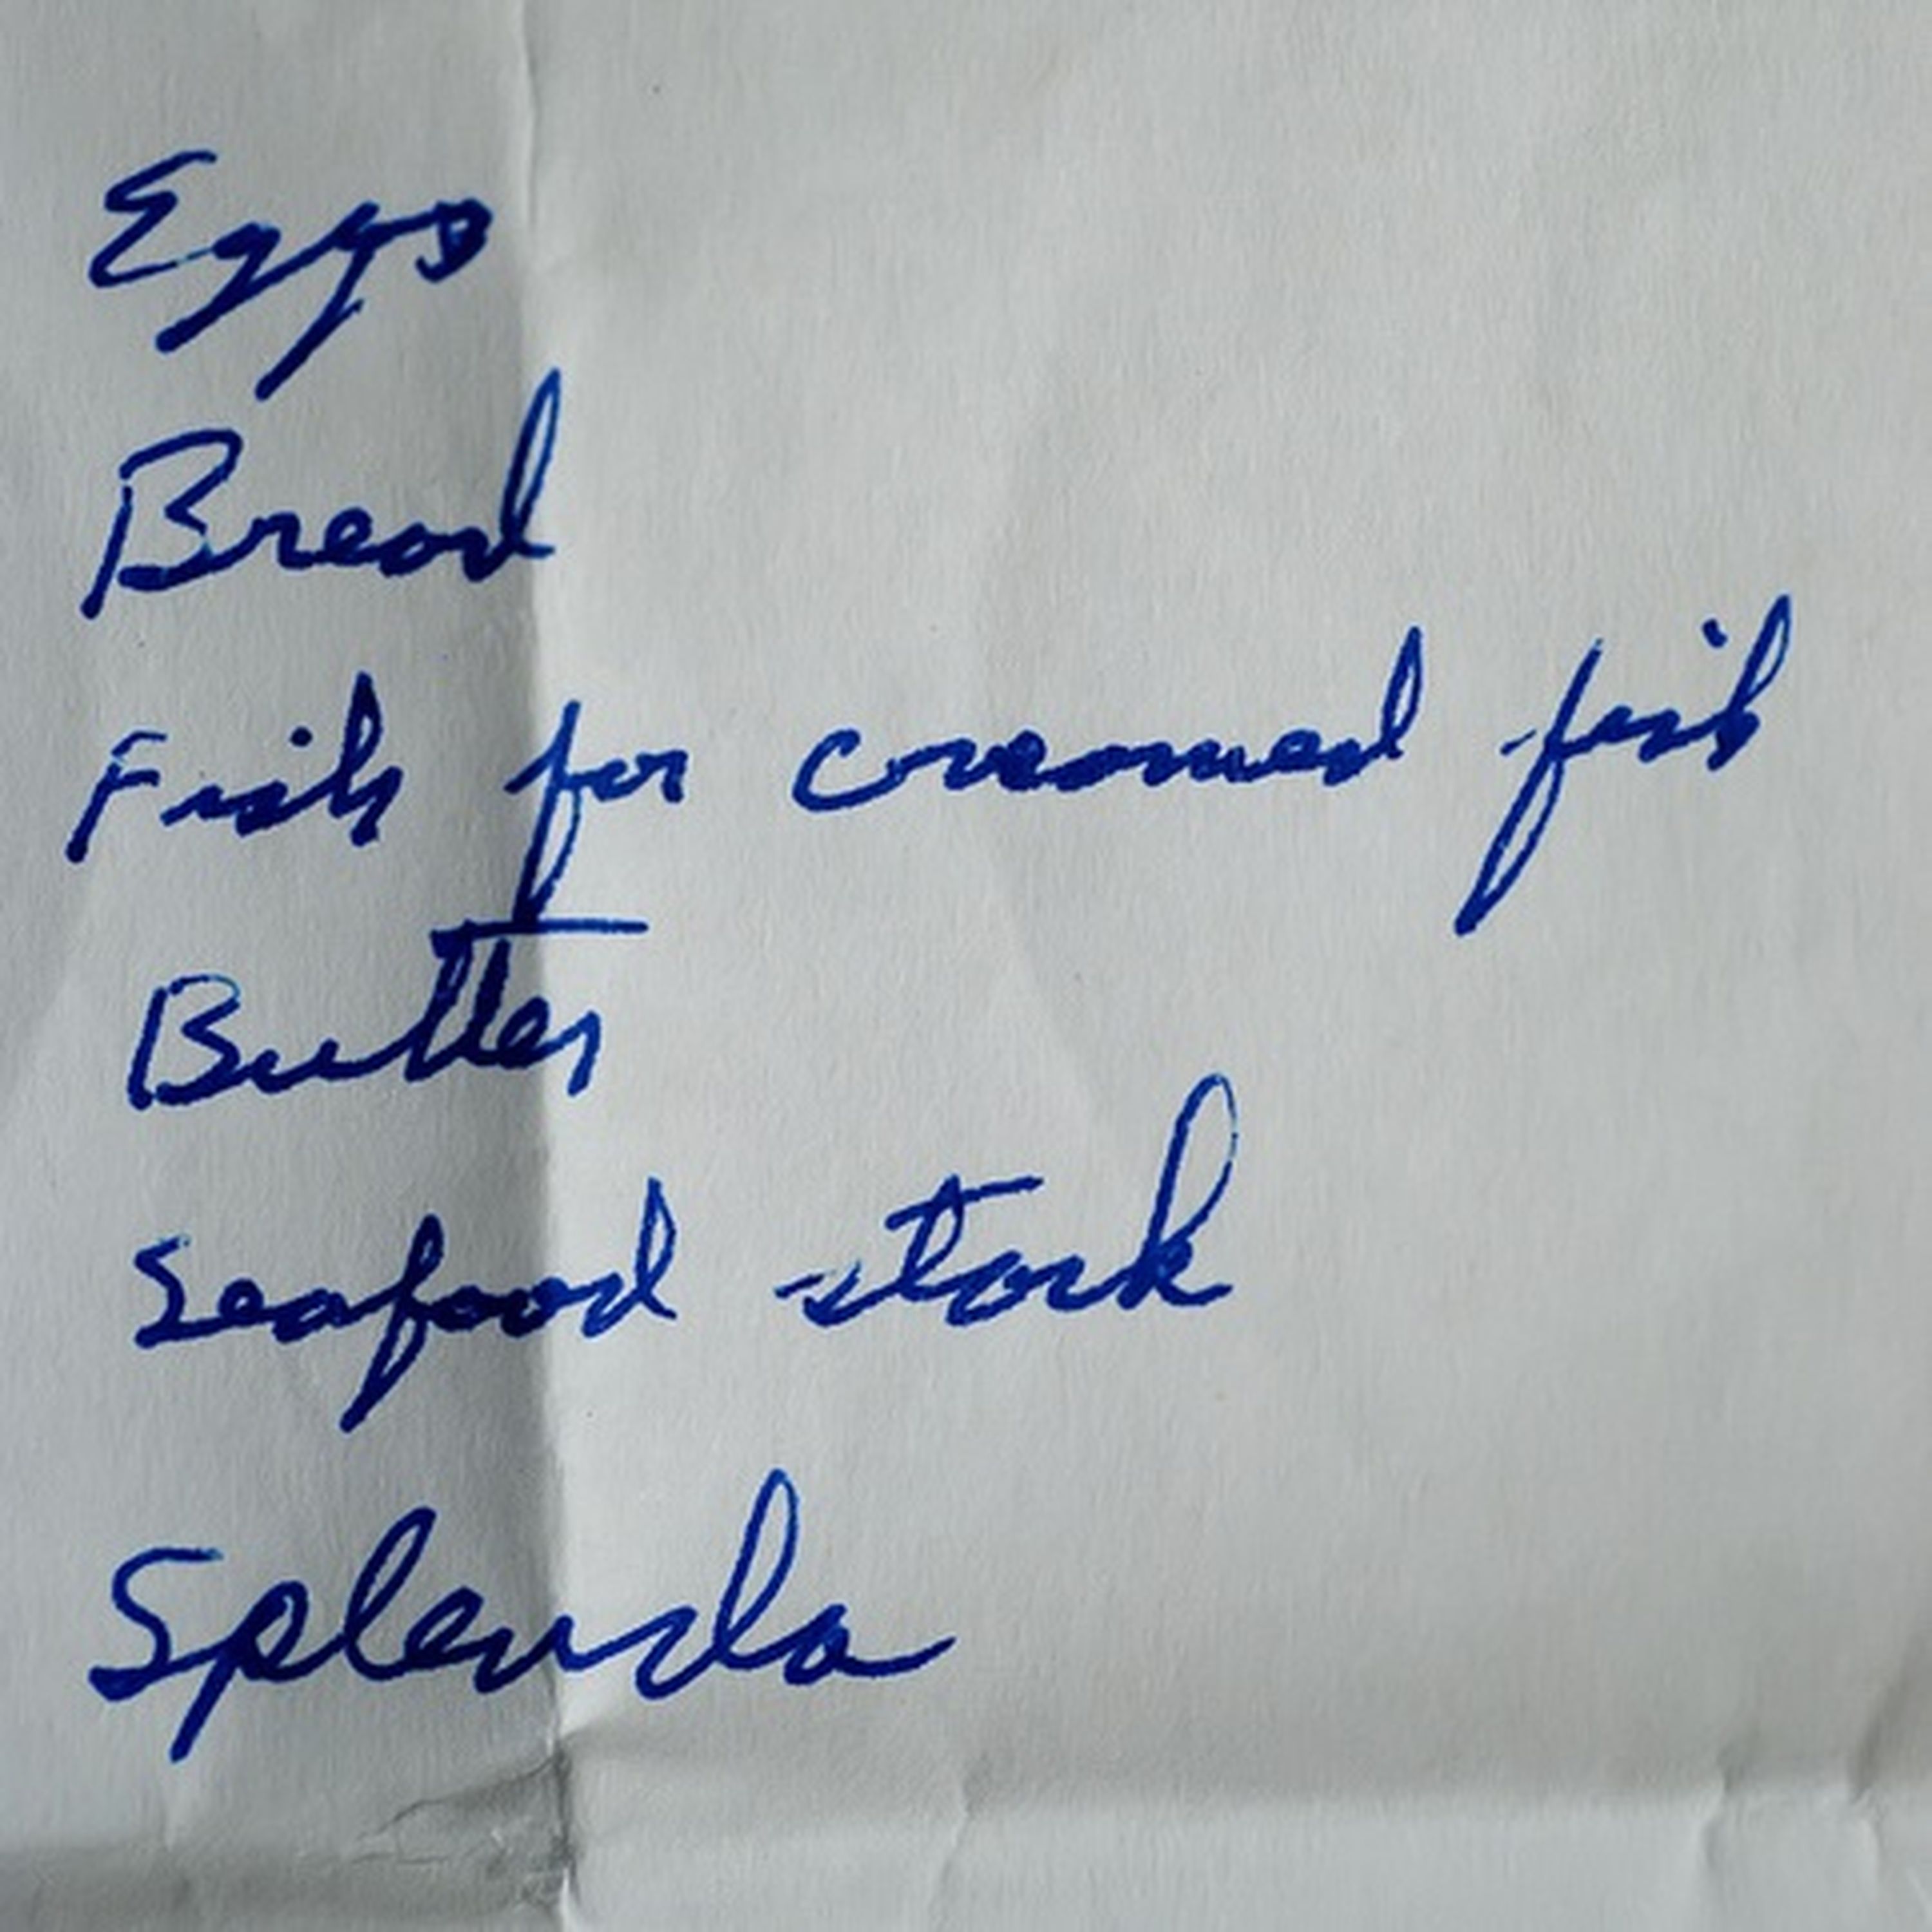 Eggs
Bread
Fish for creamed fish
Butter
Seafood stock
Splenda